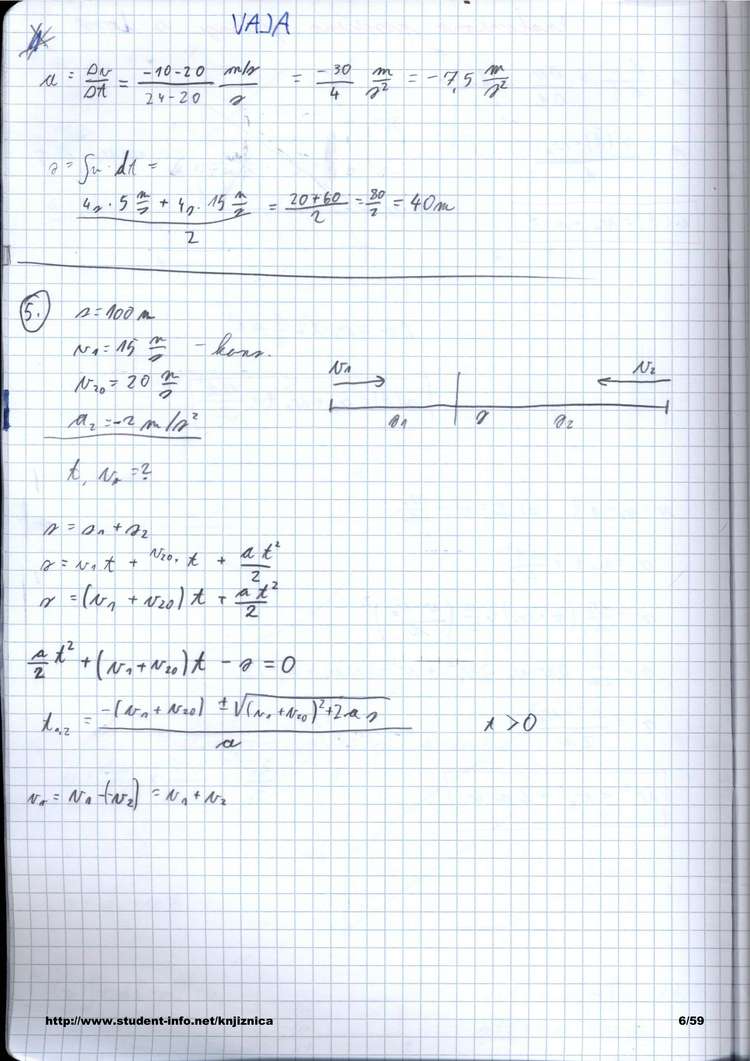 VAJA
a = Δv/Δt = (-10-20)/(24-20) (m/s)/s = -30/4 m/s² = -7,5 m/s²
s = ∫v·dt =
(4s · 5 m/s + 4s · 15 m/s)/2 = (20+60)/2 = 80/2 = 40m
5. s = 100 m
v₁ = 15 m/s - kons.
v₂₀ = 20 m/s
a₂ = -2 m/s²
v₁ v₂
s₁ s s₂
t, vᵣ = ?
s = s₁ + s₂
s = v₁t + v₂₀·t + at²/2
s = (v₁ + v₂₀)t + at²/2
a/2 t² + (v₁+v₂₀)t - s = 0
t₁,₂ = (-(v₁+v₂₀) ± √((v₁+v₂₀)²+2as))/a t > 0
vᵣ = v₁-(-v₂) = v₁+v₂
http://www.student-info.net/knjiznica 6/59